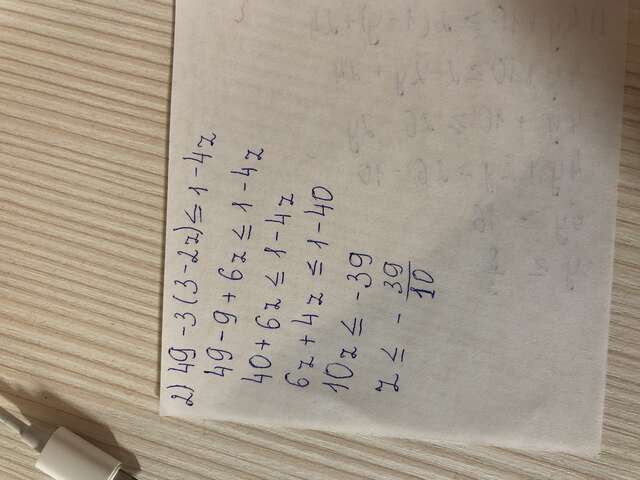 2) 49 - 3(3 - 2z) ≤ 1 - 4z
49 - 9 + 6z ≤ 1 - 4z
40 + 6z ≤ 1 - 4z
6z + 4z ≤ 1 - 40
10z ≤ - 39
z ≤ - 39/10